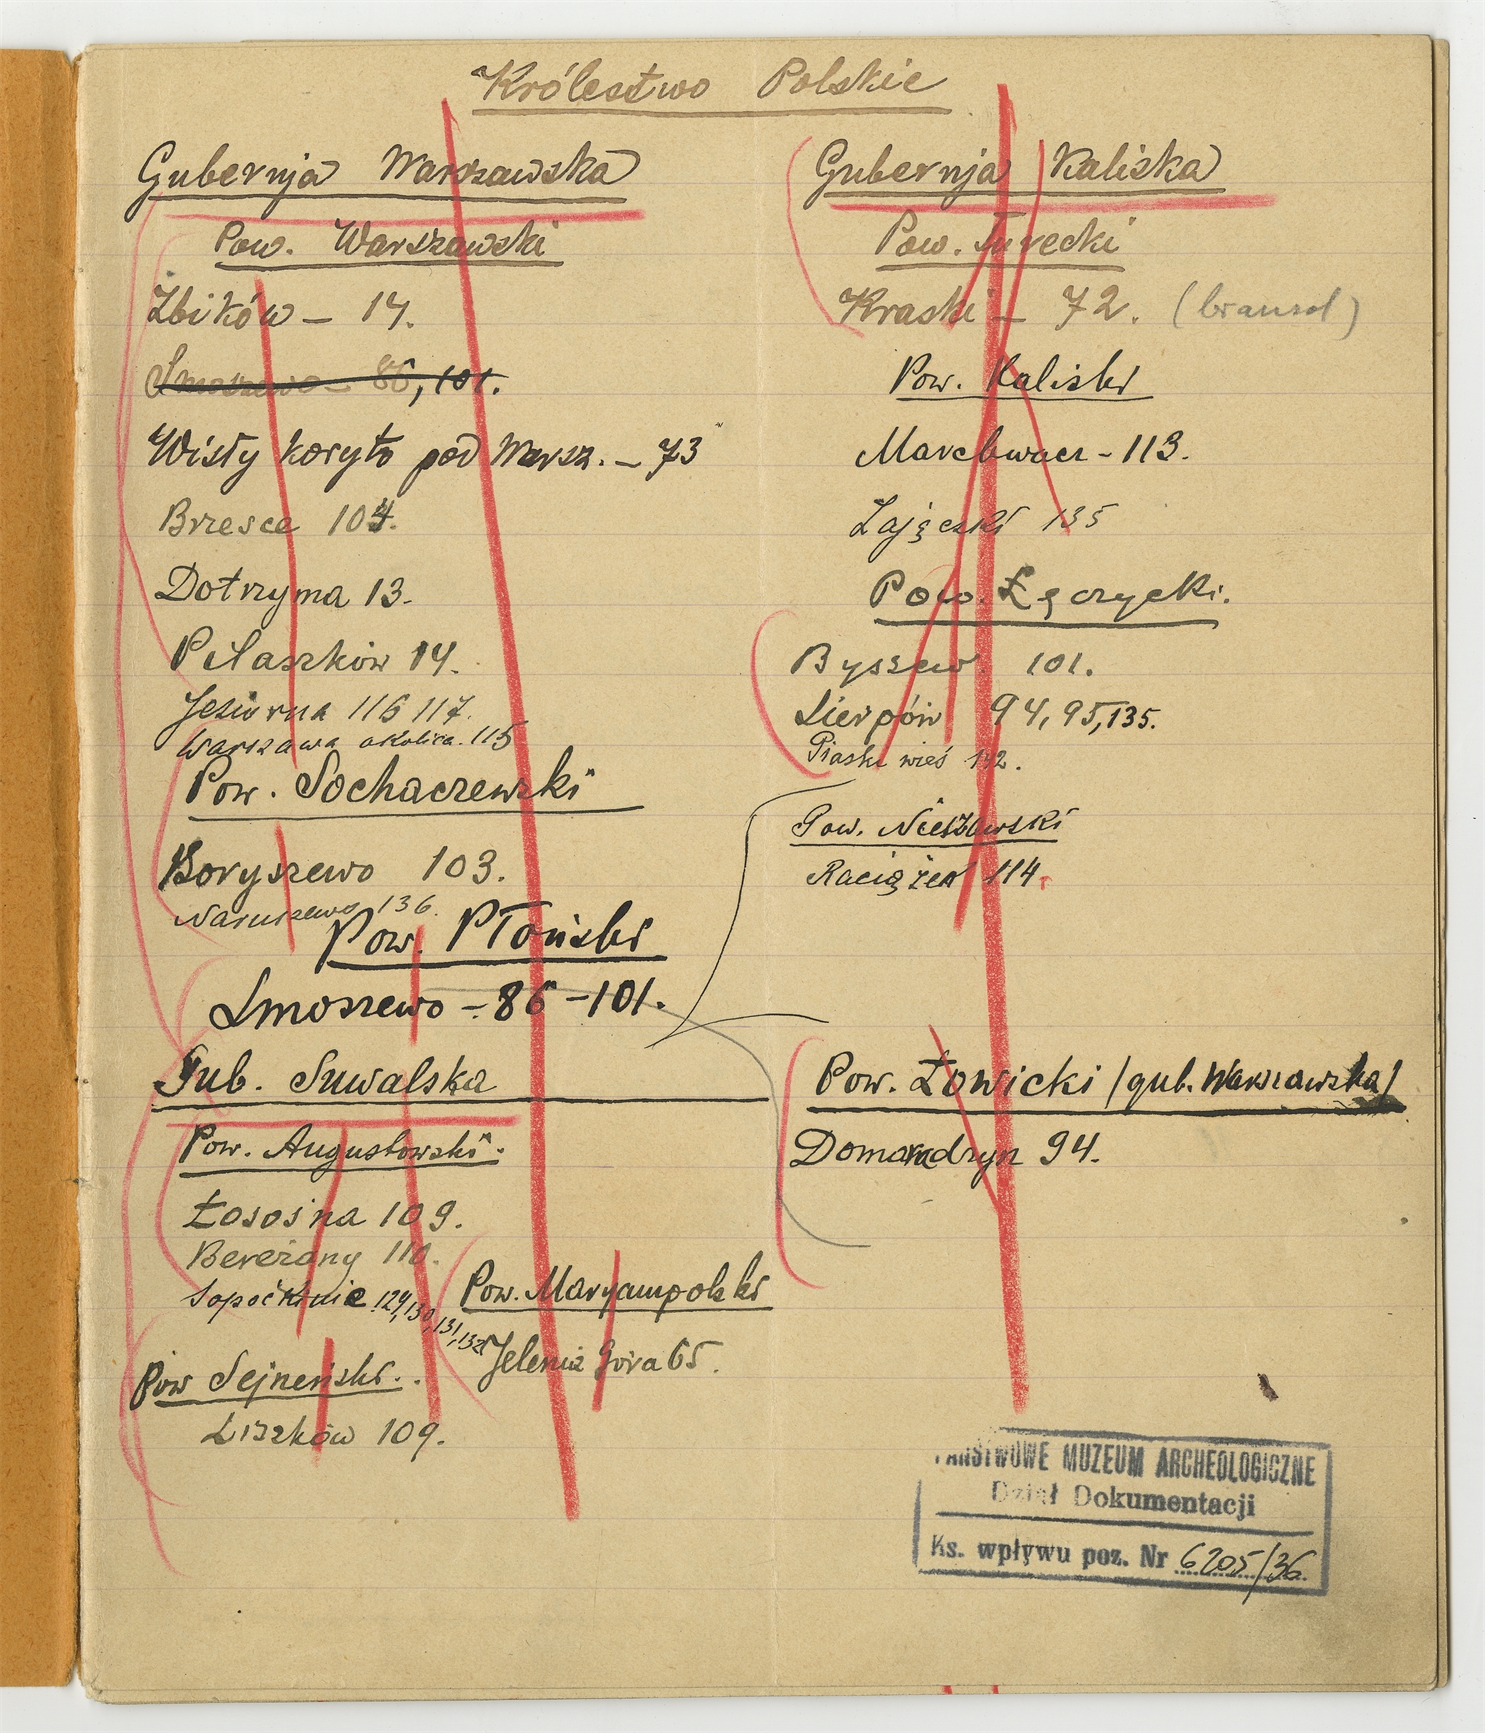 Królestwo Polskie
Gubernja Warszawska
Pow. Warszawski
Żbików – 14.
Smoszewo – 86, 101.
Wisły koryto pod Warsz. – 73
Brzesce 104.
Dotrzyma 13.
Pilaszków 14.
Jeziorna 116 117.
Warszawa okolica. 115
Pow. Sochaczewski
Boryszewo 103.
Naruszewo 136.
Pow. Płoński
Smoszewo – 86 – 101.
Gub. Suwalska
Pow. Augustowski.
Łosośna 109.
Bereżany 110.
Sopoćkinie 129, 130, 131, 132
Pow. Maryampolski
Jelenia Góra 65.
Pow Sejneński.
Liszków 109.
Gubernja Kaliska
Pow. Turecki
Kraski – 72.
Pow. Kaliski
Marchwacz – 113.
Zajączki 135
Pow. Łęczycki.
Byszew 101.
Sierpów 94, 95, 135.
Piaski wieś 132.
Pow. Nieszawski
Raciążek 114.
Pow. Łowicki / gub. Warszawska /
Domaradzyn 94.
PAŃSTWOWE MUZEUM ARCHEOLOGICZNE
Dział Dokumentacji
Ks. wpływu poz. Nr 6205/36